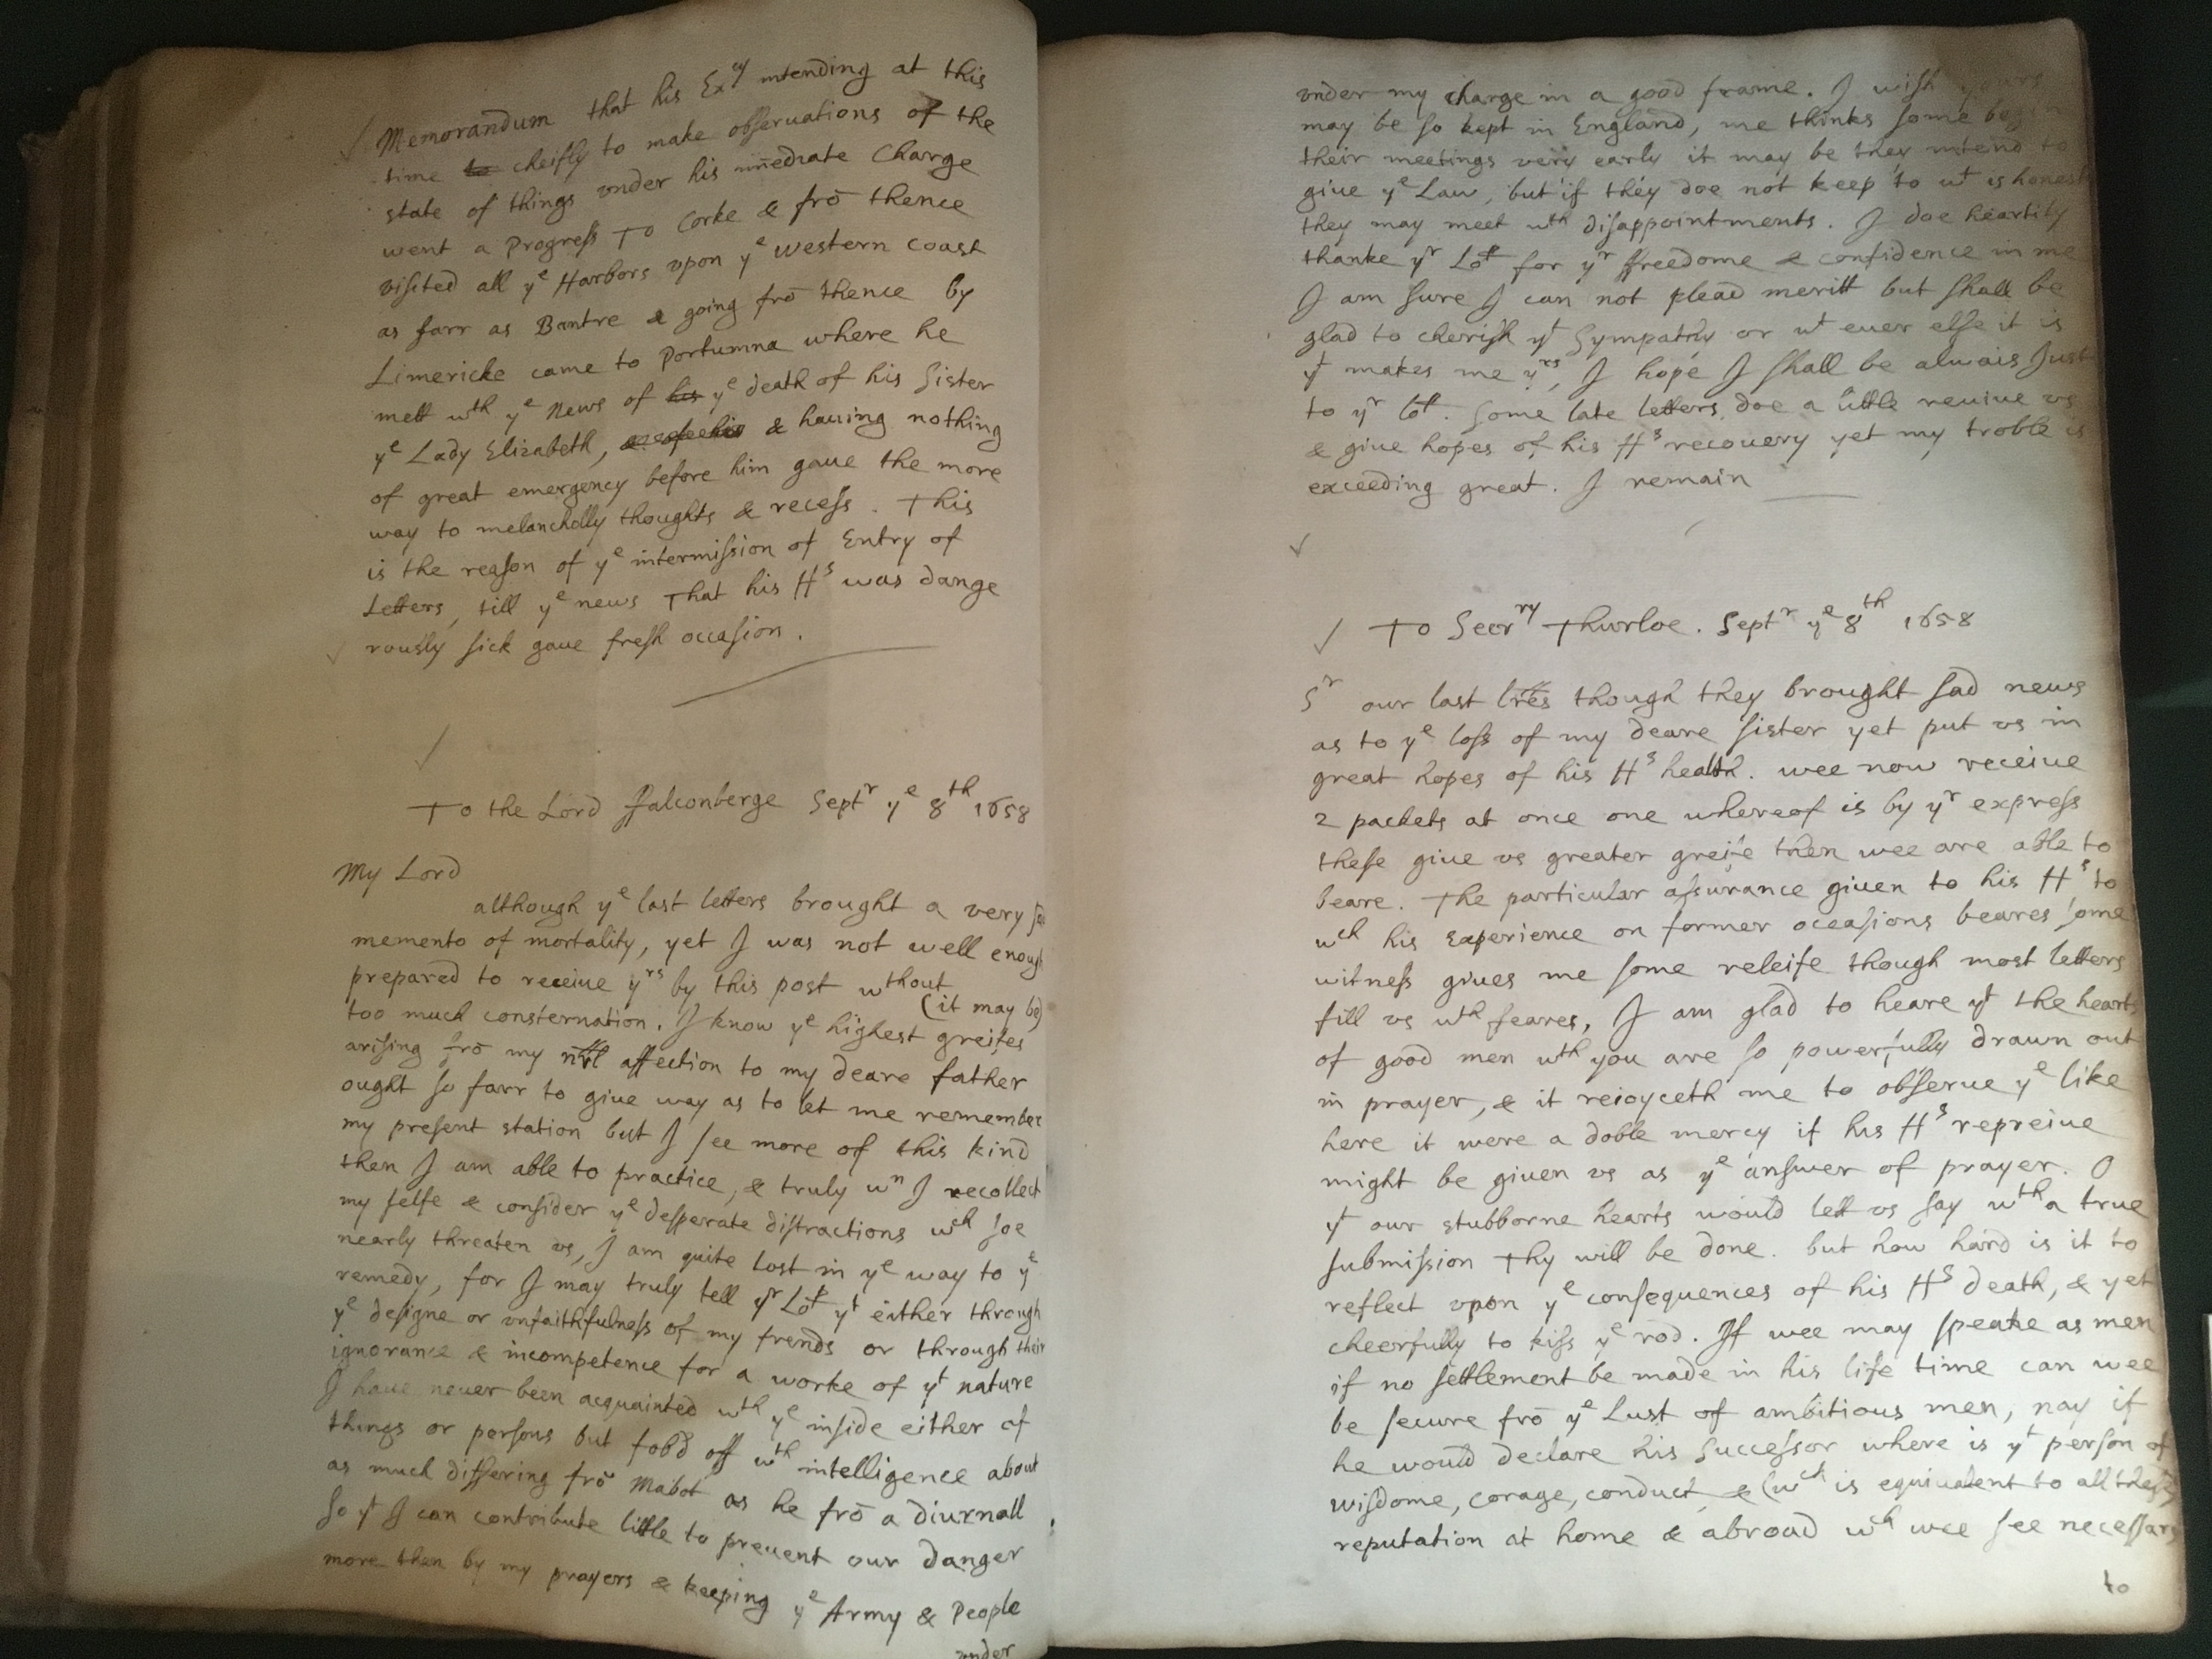 Memorandum that his Ex^cy intending at this
time to cheifly to make obseruations of the
state of things vnder his im̄ediate Charge
went a Progress To Corke & frō thence
visited all y^e Harbors vpon y^e western coast
as farr as Bantre & going frō thence by
Limericke came to Portumna where he
mett w^th y^e News of his y^e death of his Sister
y^e Lady Elizabeth, & hauing nothing
of great emergency before him gaue the more
way to melancholly thoughts & recess. This
is the reason of y^e intermission of Entry of
Letters, till y^e news That his H^s was dange
rously sick gaue fresh occasion.
To the Lord ffalconberge Sept^r y^e 8^th 1658
My Lord
although y^e last letters brought a very
memento of mortality, yet I was not well enough
prepared to receiue y^rs by this post w^thout
(it may be)
too much consternation. I know y^e highest greifes
arising frō my nr̄l affection to my deare father
ought so farr to giue way as to let me remember
my present station but I see more of this kind
then I am able to practice, & truly w^n I recollect
my selfe & consider y^e desperate distractions w^ch soe
nearly threaten vs, I am quite lost in y^e way to y^e
remedy, for I may truly tell y^r Lo^p y^t either through
y^e designe or vnfaithfulness of my frends or through their
ignorance & incompetence for a worke of y^t nature
I haue neuer been acquainted w^th y^e inside either of
things or persons but fobd off w^th intelligence about
as much differing frō Mabot as he frō a diurnall
So y^t I can contribute little to preuent our danger
more then by my prayers & keeping y^e Army & People
vnder
vnder my charge in a good frame. I wish
may be so kept in England, me thinks some
their meetings very early it may be they intend to
giue y^e Law, but if they doe not keep to w^t is honest
they may meet w^th disappointments. I doe heartily
thanke y^r Lo^p for y^r ffreedome & confidence in me
I am sure I can not plead meritt but shall be
glad to cherish y^t Sympathy or w^t euer else it is
y^t makes me y^rs, I hope I shall be alwais Just
to y^r lo^p. Some late letters doe a little reuiue vs
& giue hopes of his H^s recouery yet my troble is
exceeding great. I remain
To Secr^ry Thurloe. Sept^r y^e 8^th 1658
S^r our last lr̄es though they brought sad news
as to y^e loss of my deare sister yet put vs in
great hopes of his H^s health. wee now receiue
2 packets at once one whereof is by y^r express
these giue vs greater greife then wee are able to
beare. The particular assurance given to his H^s to
w^ch his Experience on former occasions beares some
witness giues me some releife though most letters
fill vs w^th feares, I am glad to heare y^t the hearts
of good men w^th you are so powerfully drawn out
in prayer, & it reioyceth me to obserue y^e like
here it were a doble mercy if his H^s repreiue
might be giuen vs as y^e answer of prayer. O
y^t our stubborne hearts would lett vs say w^th a true
submission Thy will be done. but how hard is it to
reflect vpon y^e consequences of his H^s death, & yet
cheerfully to kiss y^e rod. If wee may speake as men
if no settlement be made in his life time can wee
be secure frō y^e Lust of ambitious men, nay if
he would declare his Successor where is y^t person of
wisdome, corage, conduct, & (w^ch is equiualent to all these)
reputation at home & abroad w^ch wee see necessary
to